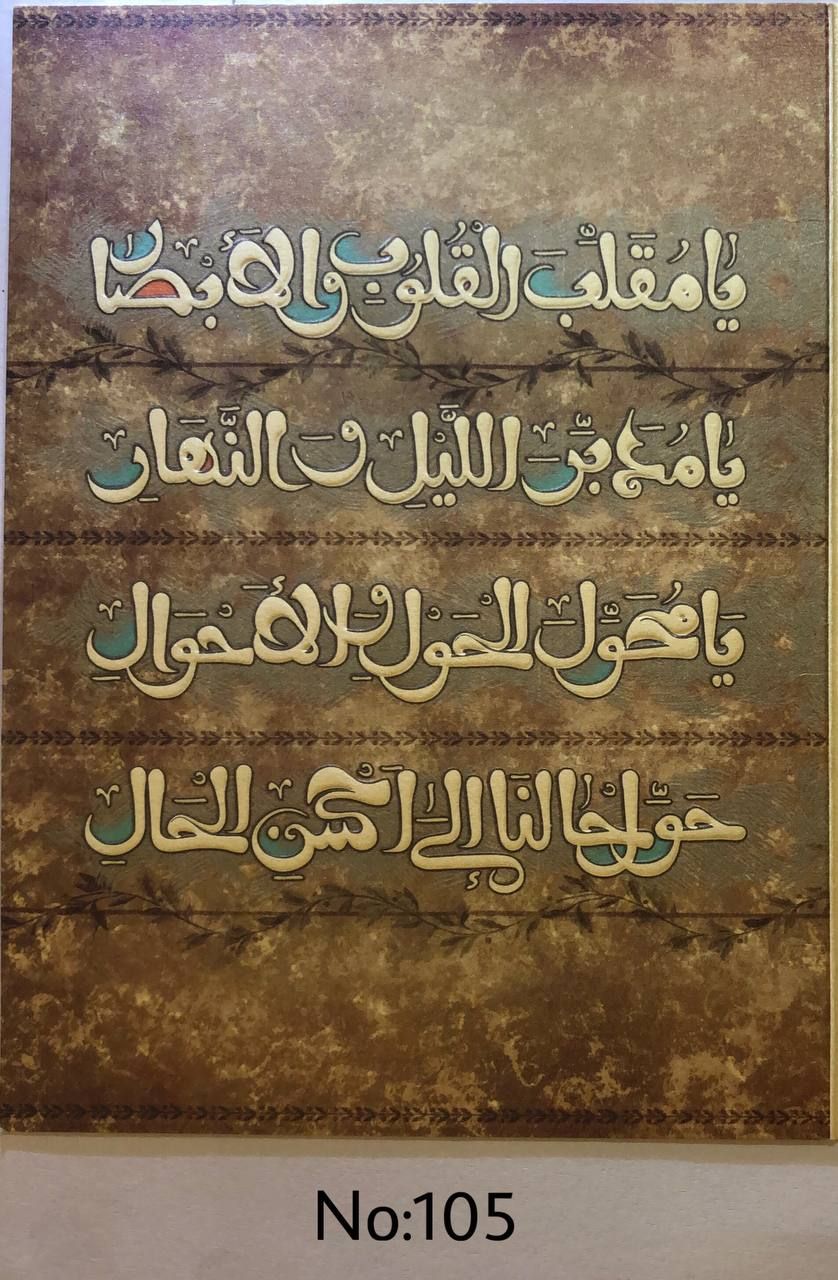 يَا مُقَلِّبَ الْقُلُوبِ وَالْأَبْصَارِ
يَا مُدَبِّرَ اللَّيْلِ وَ النَّهَارِ
يَا مُحَوِّلَ الْحَوْلِ وَ الْأَحْوَالِ
حَوِّلْ حَالَنَا إِلَى أَحْسَنِ الْحَالِ
No:105